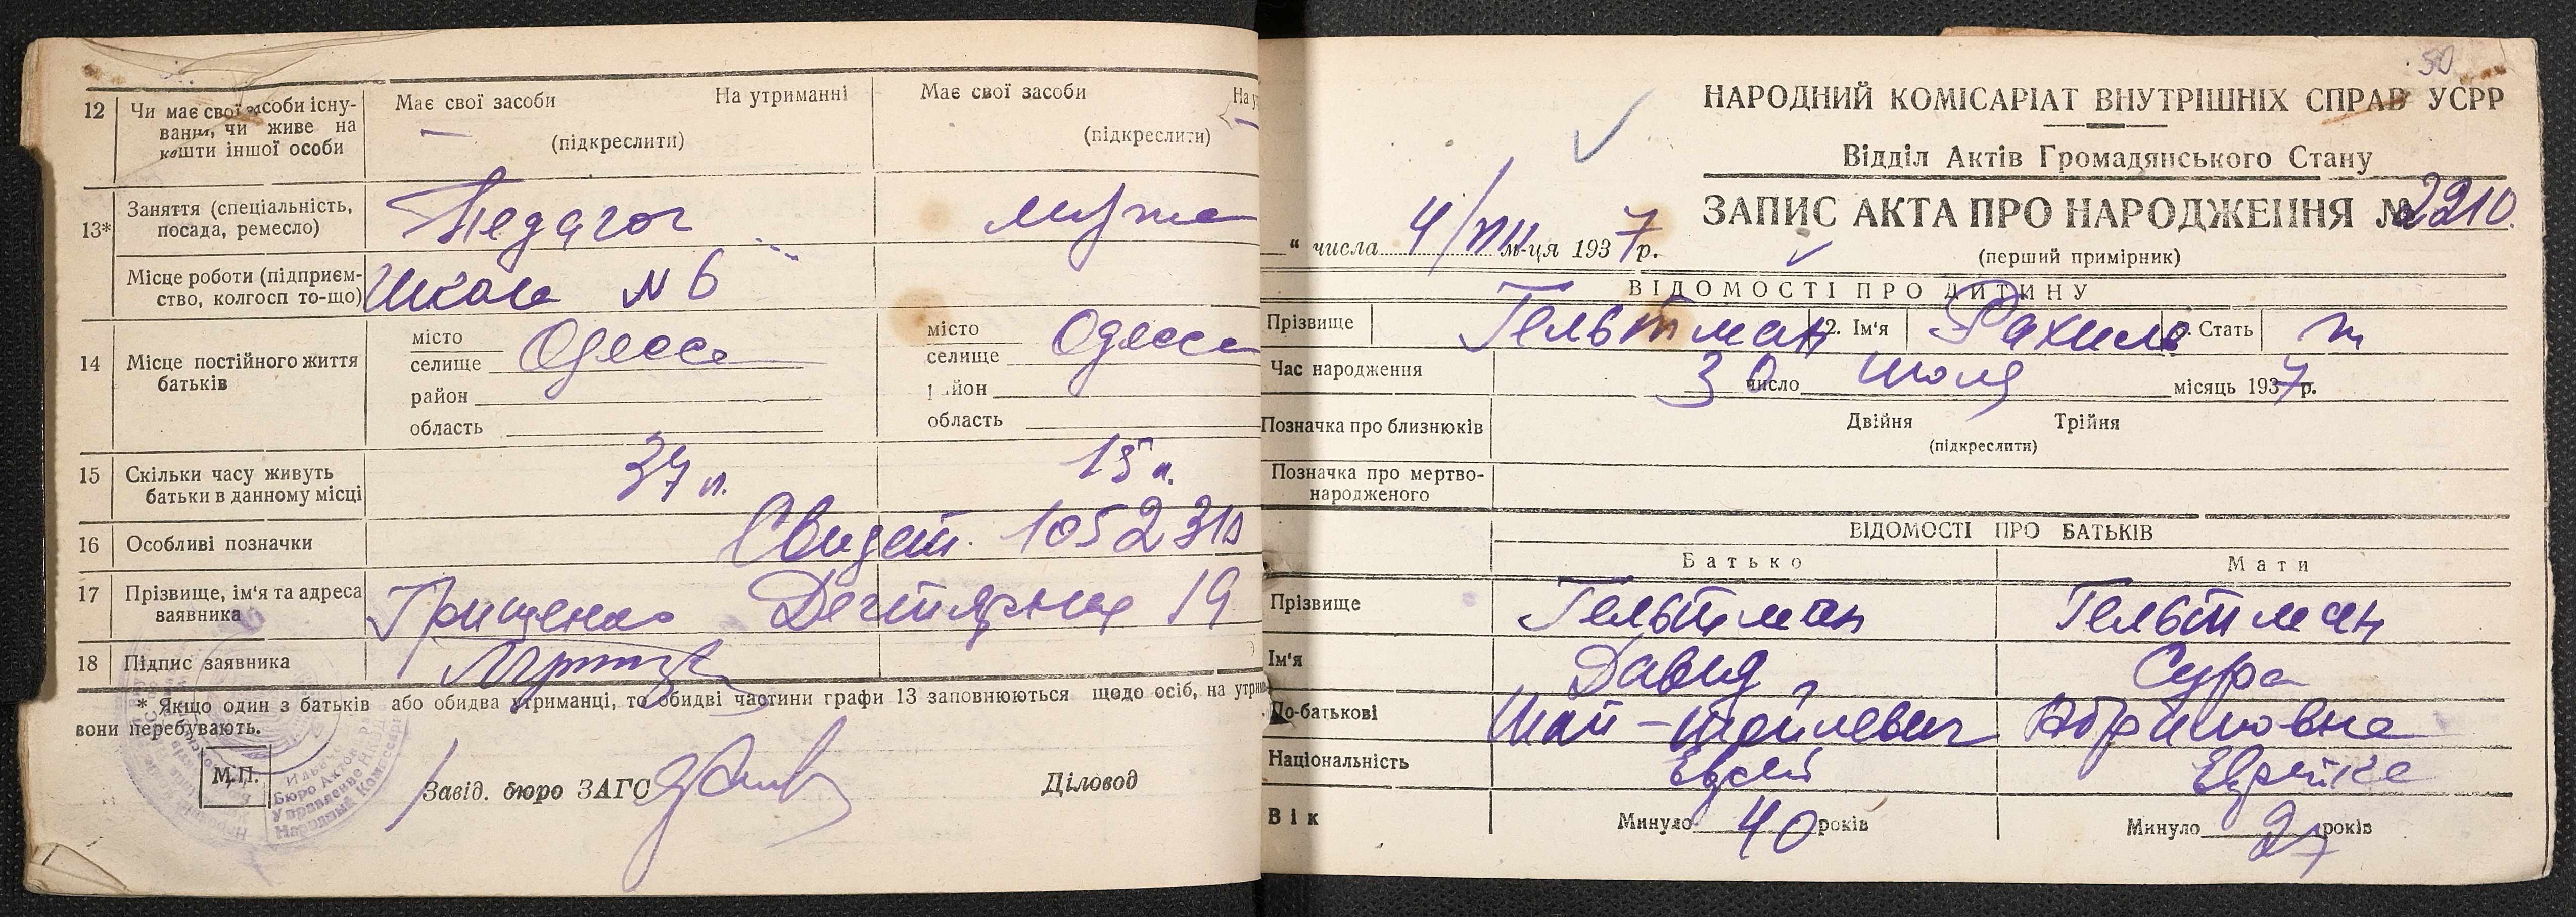 12 Чи має свої засоби існування, чи живе на кошти іншої особи
Має свої засоби На утриманні
(підкреслити)
Має свої засоби
(підкреслити)
13* Заняття (спеціальність, посада, ремесло)
Педагог
Місце роботи (підприємство, колгосп то-що)
Школа N 6
14 Місце постійного життя батьків
місто
селище Одесса
район
область
місто
селище Одесса
район
область
15 Скільки часу живуть батьки в данному місці
37 л.
15 л.
16 Особливі позначки
Свидет. 1052310
17 Прізвище, ім'я та адреса заявника
Грищенко Дегтярная 19
18 Підпис заявника
* Якщо один з батьків або обидва утриманці, то обидві частини графи 13 заповнюються щодо осіб, на
вони перебувають.
М.П.
Завід. бюро ЗАГС
Діловод
50
НАРОДНИЙ КОМІСАРІАТ ВНУТРІШНІХ СПРАВ УСРР
Відділ Актів Громадянського Стану
ЗАПИС АКТА ПРО НАРОДЖЕННЯ № 2210.
(перший примірник)
" числа 4/VIII м-ця 1937 р.
ВІДОМОСТІ ПРО ДИТИНУ
Прізвище Гельтман 2. Ім'я Рахиль Стать
Час народження 30 число июля місяць 1937 р.
Позначка про близнюків
Двійня Трійня
(підкреслити)
Позначка про мертвонародженого
ВІДОМОСТІ ПРО БАТЬКІВ
Батько Мати
Прізвище Гельтман Гельтман
Ім'я Давид Сура
По-батькові Абрамовна
Національність Еврей Еврейка
Вік Минуло 40 років Минуло 27 років